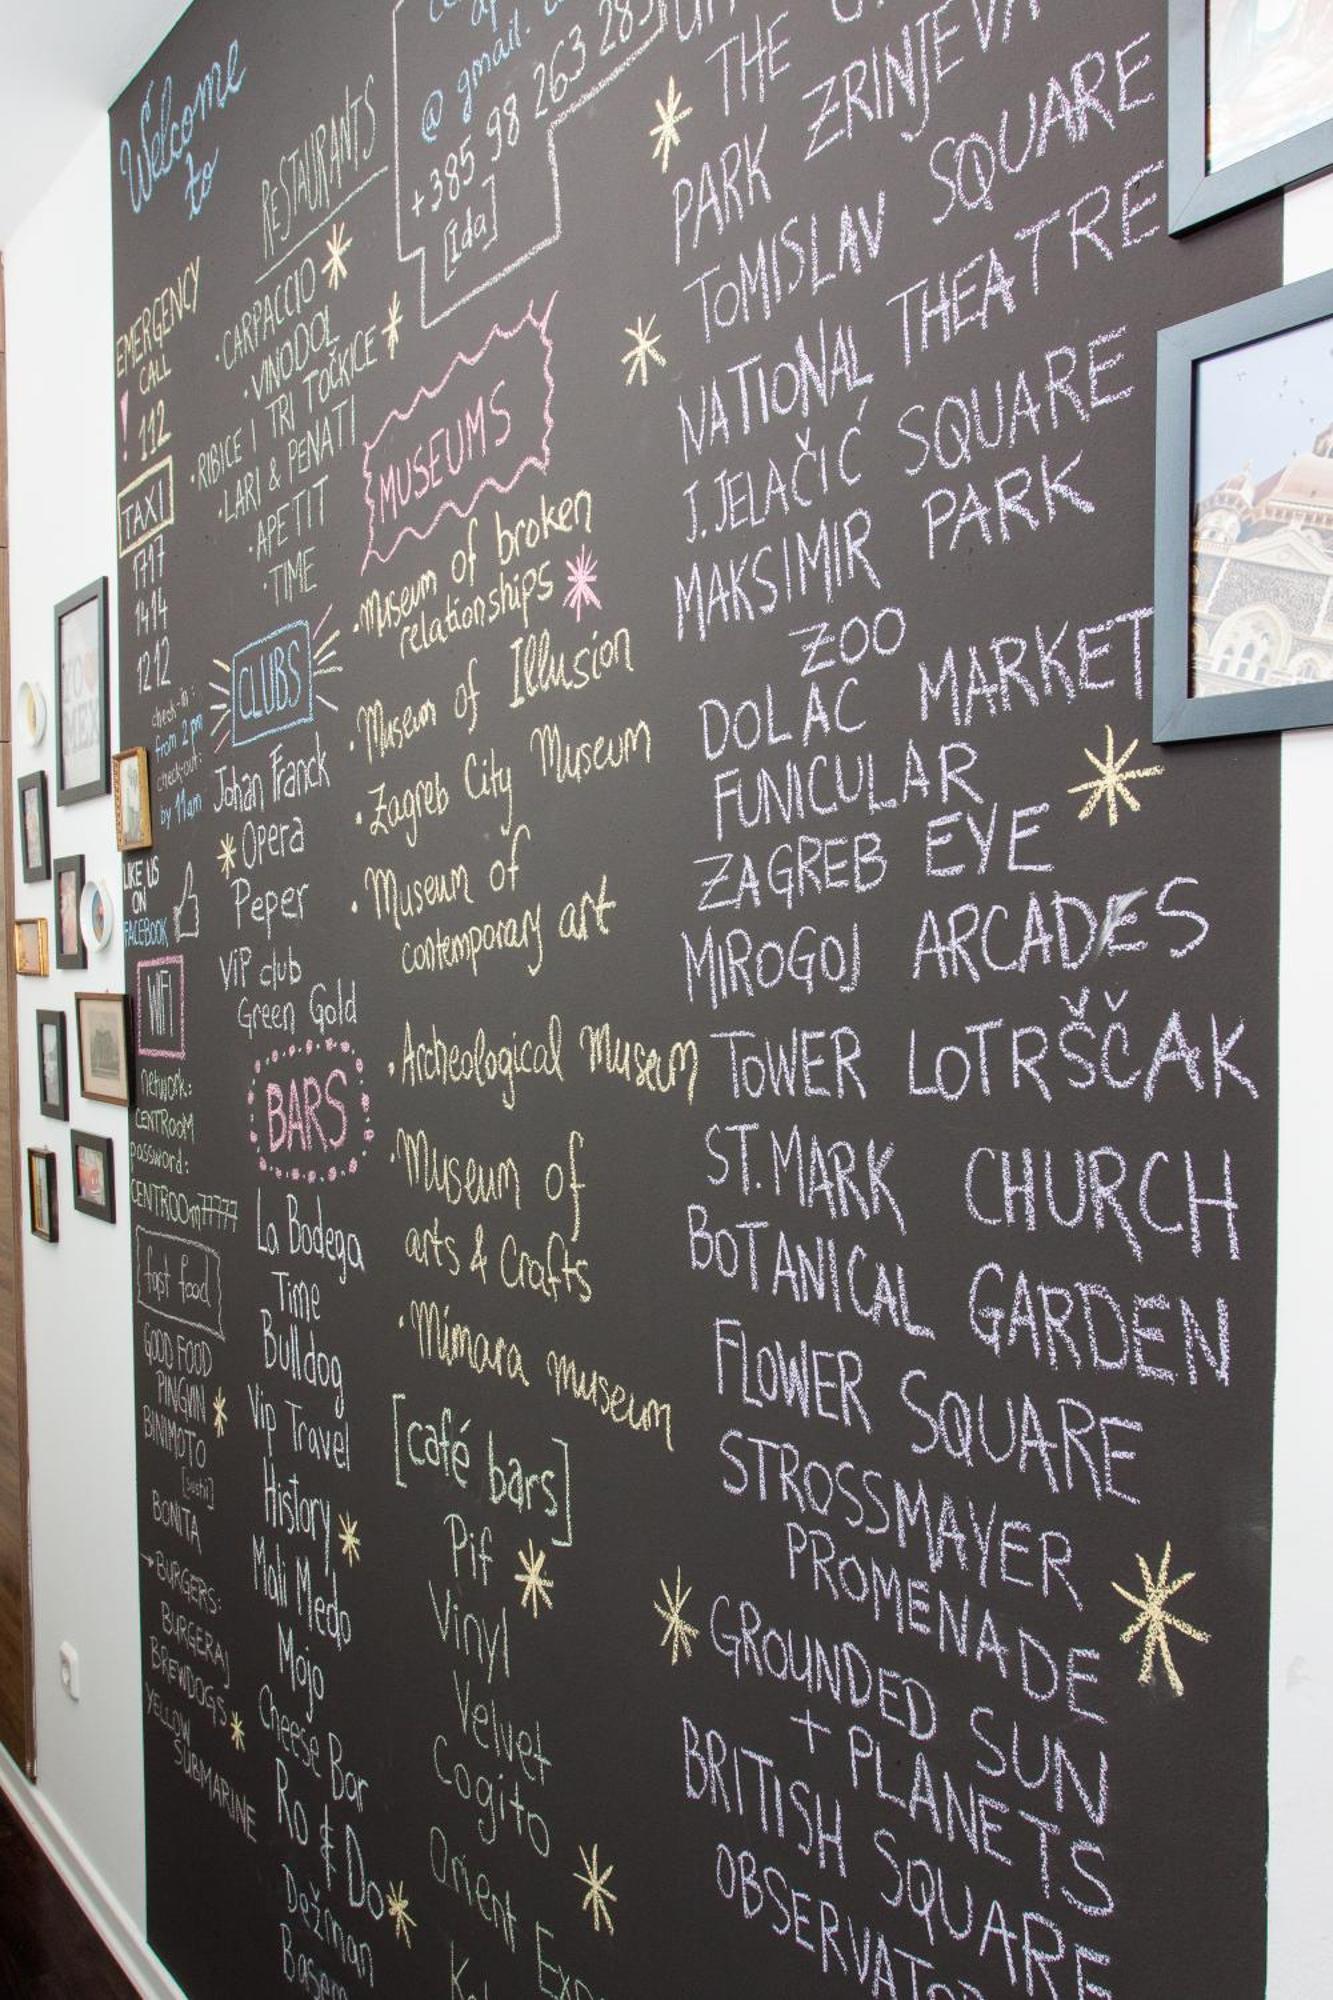 Welcome
to
EMERGENCY
CALL
! 112
TAXI
1717
1414
1212
check-in:
from 2 pm
check-out:
by 11am
LIKE US
ON
FACEBOOK
WIFI
network:
CENTROOM
password:
CENTROOM77777
fast food
GOOD FOOD
PINGVIN
BINIMOTO
[sushi]
BONITA
→BURGERS:
BURGERAJ
BREWDOGS
YELLOW
SUBMARINE
RESTAURANTS
·CARPACCIO
·VINODOL
·RIBICE I TRI TOČKICE
·LARI & PENATI
·APETIT
·TIME
CLUBS
Johan Franck
Opera
Peper
VIP club
Green Gold
BARS
La Bodega
Time
Bulldog
Vip Travel
History
Mali Medo
Mojo
Cheese Bar
Ro & Do
Dežman
@ gmail.
+385 98 263 283
[Ida]
MUSEUMS
·Museum of broken
relationships
·Museum of Illusion
·Zagreb City Museum
·Museum of
contemporary art
·Archeological Museum
·Museum of
arts & Crafts
·Mimara museum
[café bars]
Pif
Vinyl
Velvet
Cogito
Orient
THE
PARK ZRINJEVA
TOMISLAV SQUARE
NATIONAL THEATRE
J.JELAČIĆ SQUARE
MAKSIMIR PARK
ZOO
DOLAC MARKET
FUNICULAR
ZAGREB EYE
MIROGOJ ARCADES
TOWER LOTRŠČAK
ST.MARK CHURCH
BOTANICAL GARDEN
FLOWER SQUARE
STROSSMAYER
PROMENADE
GROUNDED SUN
+ PLANETS
BRITISH SQUARE
OBSERVATO